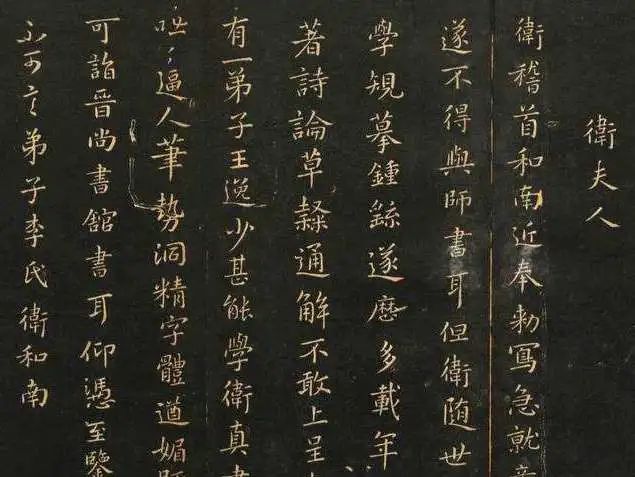 衛夫人
衛稽首和南近奉勅寫急就章
遂不得與師書耳但衛随世
學規摹鍾繇遂歷多載年
著詩論草隸通解不敢上呈
有一弟子王逸少甚能學衛真書
咄咄逼人筆勢洞精字體遒媚
可詣晉尚書館書耳仰憑至鑒
不可言弟子李氏衛和南